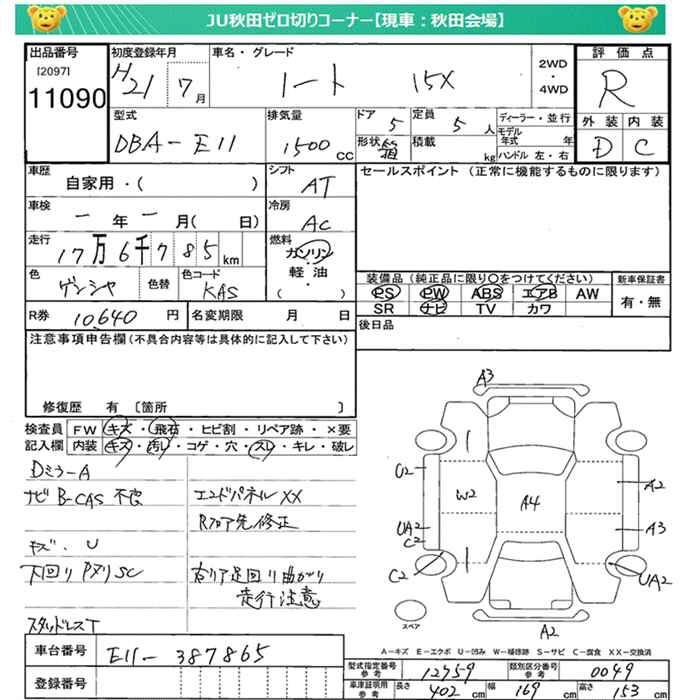 JU秋田ゼロ切りコーナー【現車：秋田会場】
出品番号
[2097]
11090
初度登録年月
H21 7月
車名・グレード
ノート 15X
2WD
・
4WD
評価点
R
外装 内装
D C
型式
DBA-E11
排気量
1500 CC
ドア
5
定員
5 人
形状 箱
積載
kg
ディーラー・並行
モデル年式 年
ハンドル 左・右
車歴
自家用・( )
シフト
AT
セールスポイント (正常に機能するものに限ります)
車検
ー年ー月( 日)
冷房
AC
走行
17万6千785km
燃料
ガソリン
・
軽油
・
( )
色
ゲンシャ
色替
色コード
KAS
装備品 (純正品に限り○をつけてください)
PS PW ABS エアB AW
SR ナビ TV カワ
新車保証書
有・無
R券 10,640 円
名変期限 月 日
後日品
注意事項申告欄(不具合内容等は具体的に記入して下さい)
修復歴 有 〔箇所 〕
検査員記入欄
FW キズ・飛石・ヒビ割・リペア跡・×要
内装 キズ・汚レ・コゲ・穴・スレ・キレ・破レ
Dミラー A
ナビ B-CAS 不良
キズ、U
下回りPヌリSC
スタッドレスT
エンドパネルXX
Rフロア先修正
右リア足回り曲がり
走行注意
A3
U2
W2
A4
A2
UA2
C2
A3
C2
UA2
スペア
A2
A-キズ E-エクボ U-凹み W-補修跡 S-サビ C-腐食 XX-交換済
車台番号
E11-387865
登録番号
型式指定番号 参考
12459
類別区分番号 参考
0049
車庫証明用 参考
長さ 402 cm
幅 169 cm
高さ 153 cm